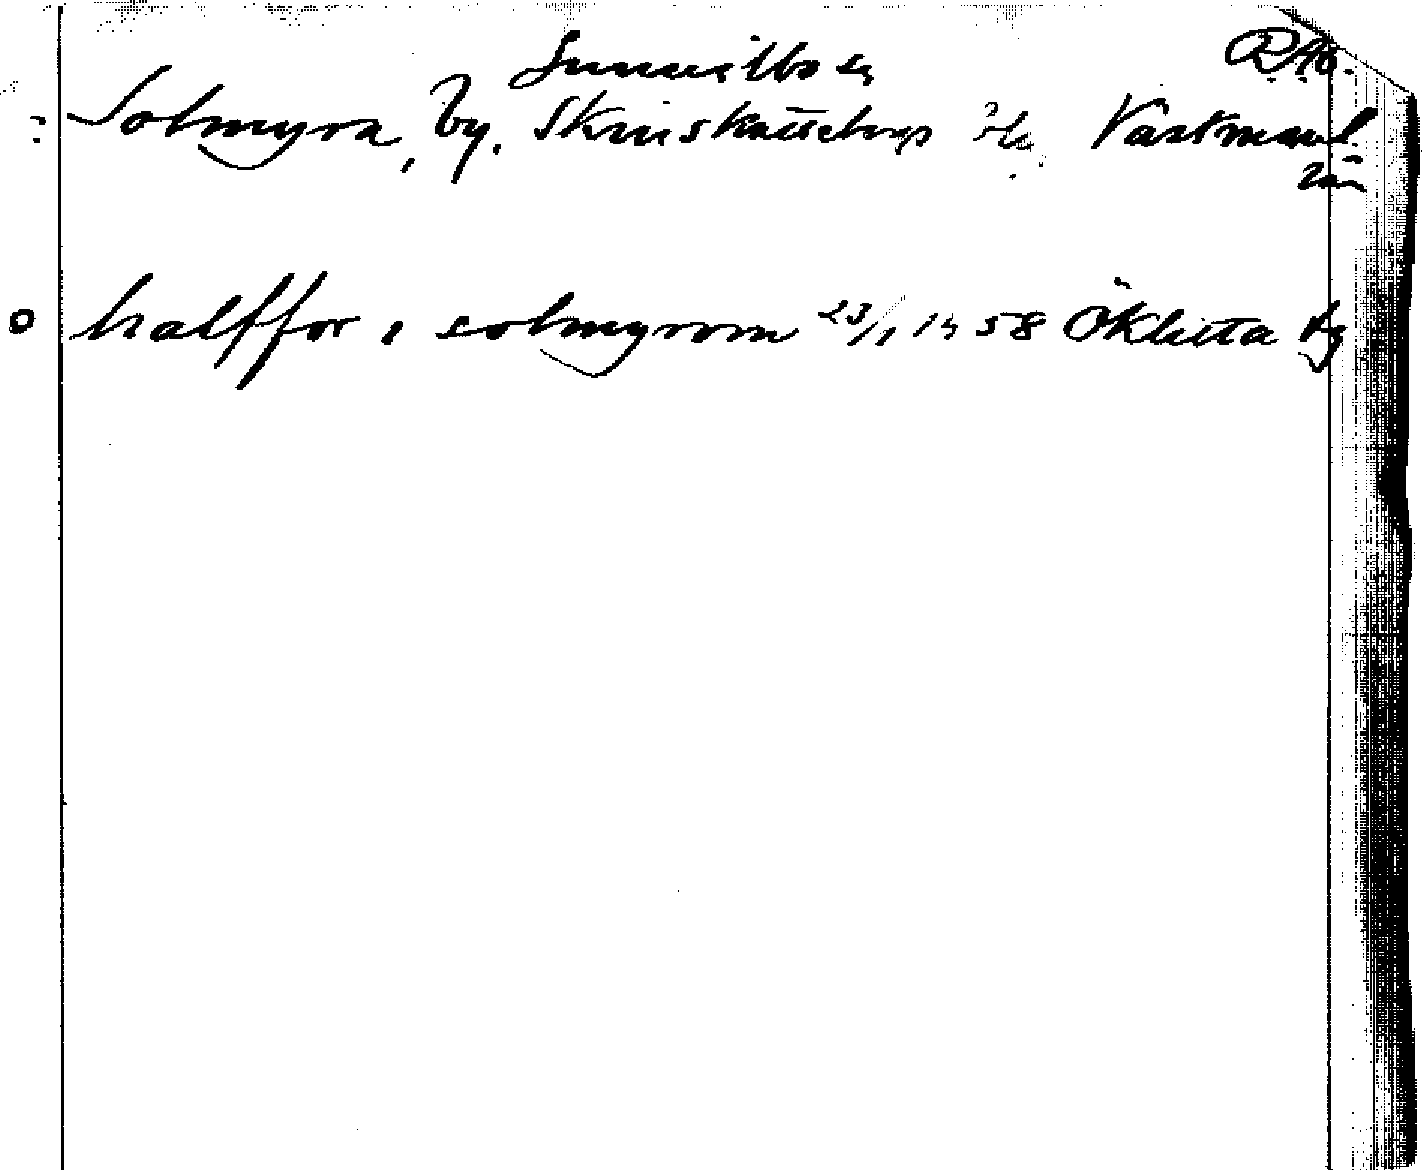 Gunnilbo sn RAp.
Solmyra, by, Skinnskattebergs hd, Västmanl.
län
halffor i solmyrom 23/1 1458 Öklista by